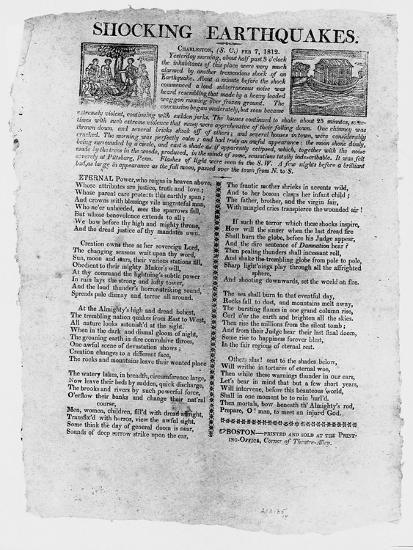 SHOCKING EARTHQUAKES.
CHARLESTON, (S. C.) FEB 7, 1812.
Yesterday morning, about half past 3 o'clock
the inhabitants of this place were very much
alarmed by another tremendous shock of an
Earthquake. About a minute before the shock
commenced a loud subterraneous noise was
heard resembling that made by a heavy loaded
waggon running over frozen ground. The
concussion began moderately, but soon became
extremely violent, continuing with sudden jirks. The houses continued to shake about 25 minutes, at
times with such extreme violence that many were apprehensive of their falling down. One chimney was
thrown down, and several bricks shook off of others; and several houses in town, were considerably
cracked. The morning was perfectly calm; and had truly an awful appearance: the moon shone dimly,
being surrounded by a cloudy, and cast a shade as if apparently eclipsed, which, together with the noise
made by the trees in the woods, produced, in the minds of some, sensations totally indescribable. It was felt
severely at Pittsburg, Penn. Flashes of light were seen in the S.W. A few nights before a brilliant
body as large in appearance as the full moon, passed over the town from N. to S.
ETERNAL Power, who reigns in heaven above
Whose attributes are justice, truth and love;
Whose parent care protects this earthly span;
And crowns with blessings vile ungrateful man,
Who ne'er unheeded, sees the sparrows fall,
But whose benevolence extends to all;
We bow before thy high and mighty throne,
And the dread justice of thy mandates own.
Creation owns thee as her sovereign Lord,
The changing seasons wait upon thy word,
Sun, moon and stars, their various stations fill,
Obedient to their mighty Maker's will,
At thy command the lightning's subtle power
In rain lays the strong and lofty tower,
And the loud thunder's horror-striking sound,
Spreads pale dismay and terror all around.
At the Almighty's high and dread behest,
The trembling nation quakes from East to West,
All nature looks astounish'd at the sight.
When in the dark and dismal gloom of night,
The groaning earth in dire convulsive throes,
One awful scene of devastation shows;
Creation changes to a different face,
The rocks and mountains leave their wonted place
The watery lakes, in breadth, circumference large,
Now leave their beds by sudden, quick discharge,
The brooks and rivers by such powerful force,
O'erflow their banks and change their natural
course,
Men, women, children, fill'd with dread affright,
Transfix'd with horror, view the awful sight.
Some think the day of general doom is near,
Sounds of deep sorrow strike upon the ear,
The frantic mother shrieks in accents wild,
And to her bosom clasps her infant child;
The father, brother, and the virgin fair,
With mingled cries transpierce the wounded air!
If such the terror which these shocks inspire,
How will the sinner when the last dread fire
Shall burn the globe, before his Judge appear,
And the dire sentence of Damnation hear?
Then pealing thunders shall incessant roll,
And shake the trembling globe from pole to pole,
Sharp lightnings play through all the affrighted
sphere,
And shooting downwards, set the world on fire.
The sea shall burn in that eventful day,
Rocks fall to dust, and mountains melt away,
The bursting flames in one grand column rise,
Curl o'er the earth and brighten all the skies.
Then rise the millions from the silent tomb;
And from their Judge hear their last final doom,
Some rise to happiness forever blest,
In the fair regions of eternal rest.
Others shall sent to the shades below,
Will writhe in tortures of eternal woe,
Then while these warnings thunder in our ears,
Let's bear in mind that but a few short years,
Will intervene, before this beauteous world,
Shall in one moment be to ruin hurl'd.
Then mortals, bow beneath th' Almighty's rod,
Prepare, O! man, to meet an injur'd God.
BOSTON—PRINTED AND SOLD AT THE PRINT-
ING-OFFICE, Corner of Theatre-Alley.